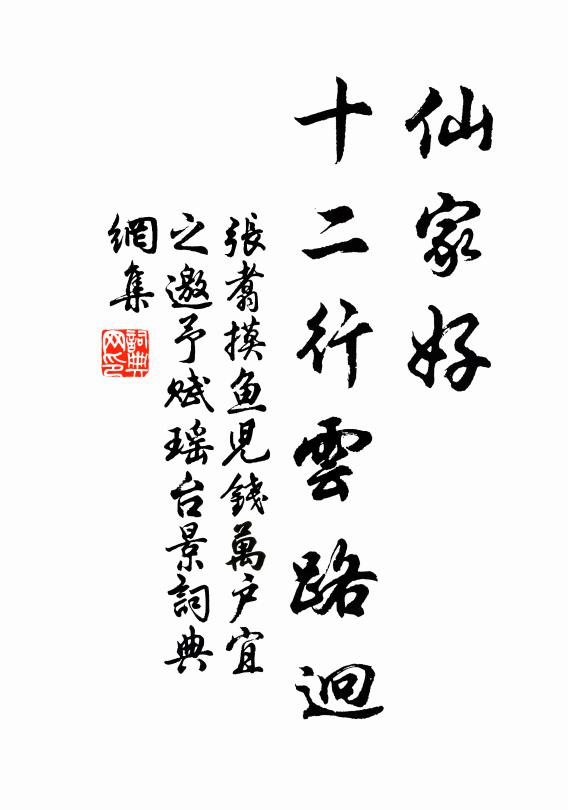 仙家好
十二行雲路迥
張翥摸鱼児錢萬户宜
之邀予赋瑶台景詞典
網集
詞典
网印